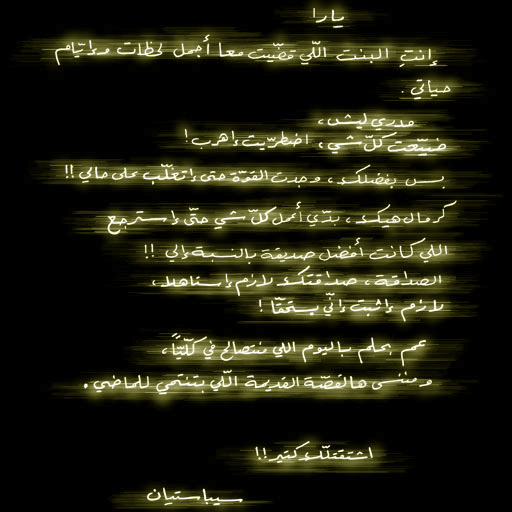 يارا
إنتِ البنت اللّي قضّيت معا أجمل لحظات وإتيام
حياتي .
مدري ليش،
ضيّعت كلّ شي، اضطرّيت إهرب!
بس بفضلك، وجدت القوّة حتى إتغلّب على حالي !!
كرمال هيك، بدّي أعمل كلّ شي حتّى إسترجع
اللي كانت أفضل صديقة بالنسبة إلي !!
الصداقة، صداقتك لازم إستاهلا،
لازم إثبت إنّي بستحقّا !
عم بحلم باليوم اللي منتصالح في كلّيّاً،
ومننسى هالقصّة القديمة اللّي بتنتمي للماضي.
اشتقتلّك كتير!!
سيباستيان